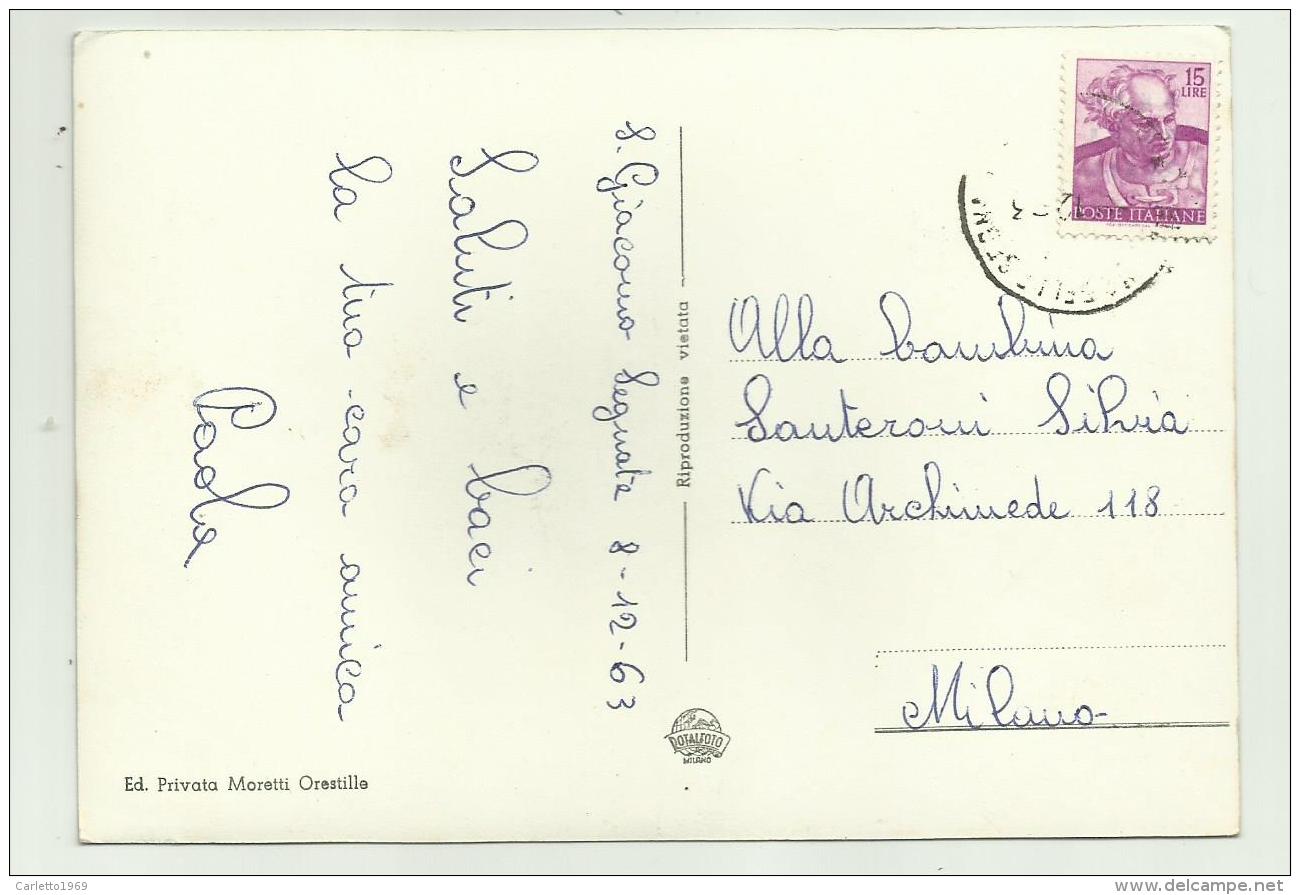 S. Giacomo Segnate 8-12-63
Saluti e baci
la tua cara amica
Paola
Riproduzione vietata
15
LIRE
POSTE ITALIANE
Alla bambina
Santeroni Silvia
Via Archimede 118
Milano
ROTALFOTO
MILANO
Ed. Privata Moretti Orestille
Carletto1969
delcampe.net